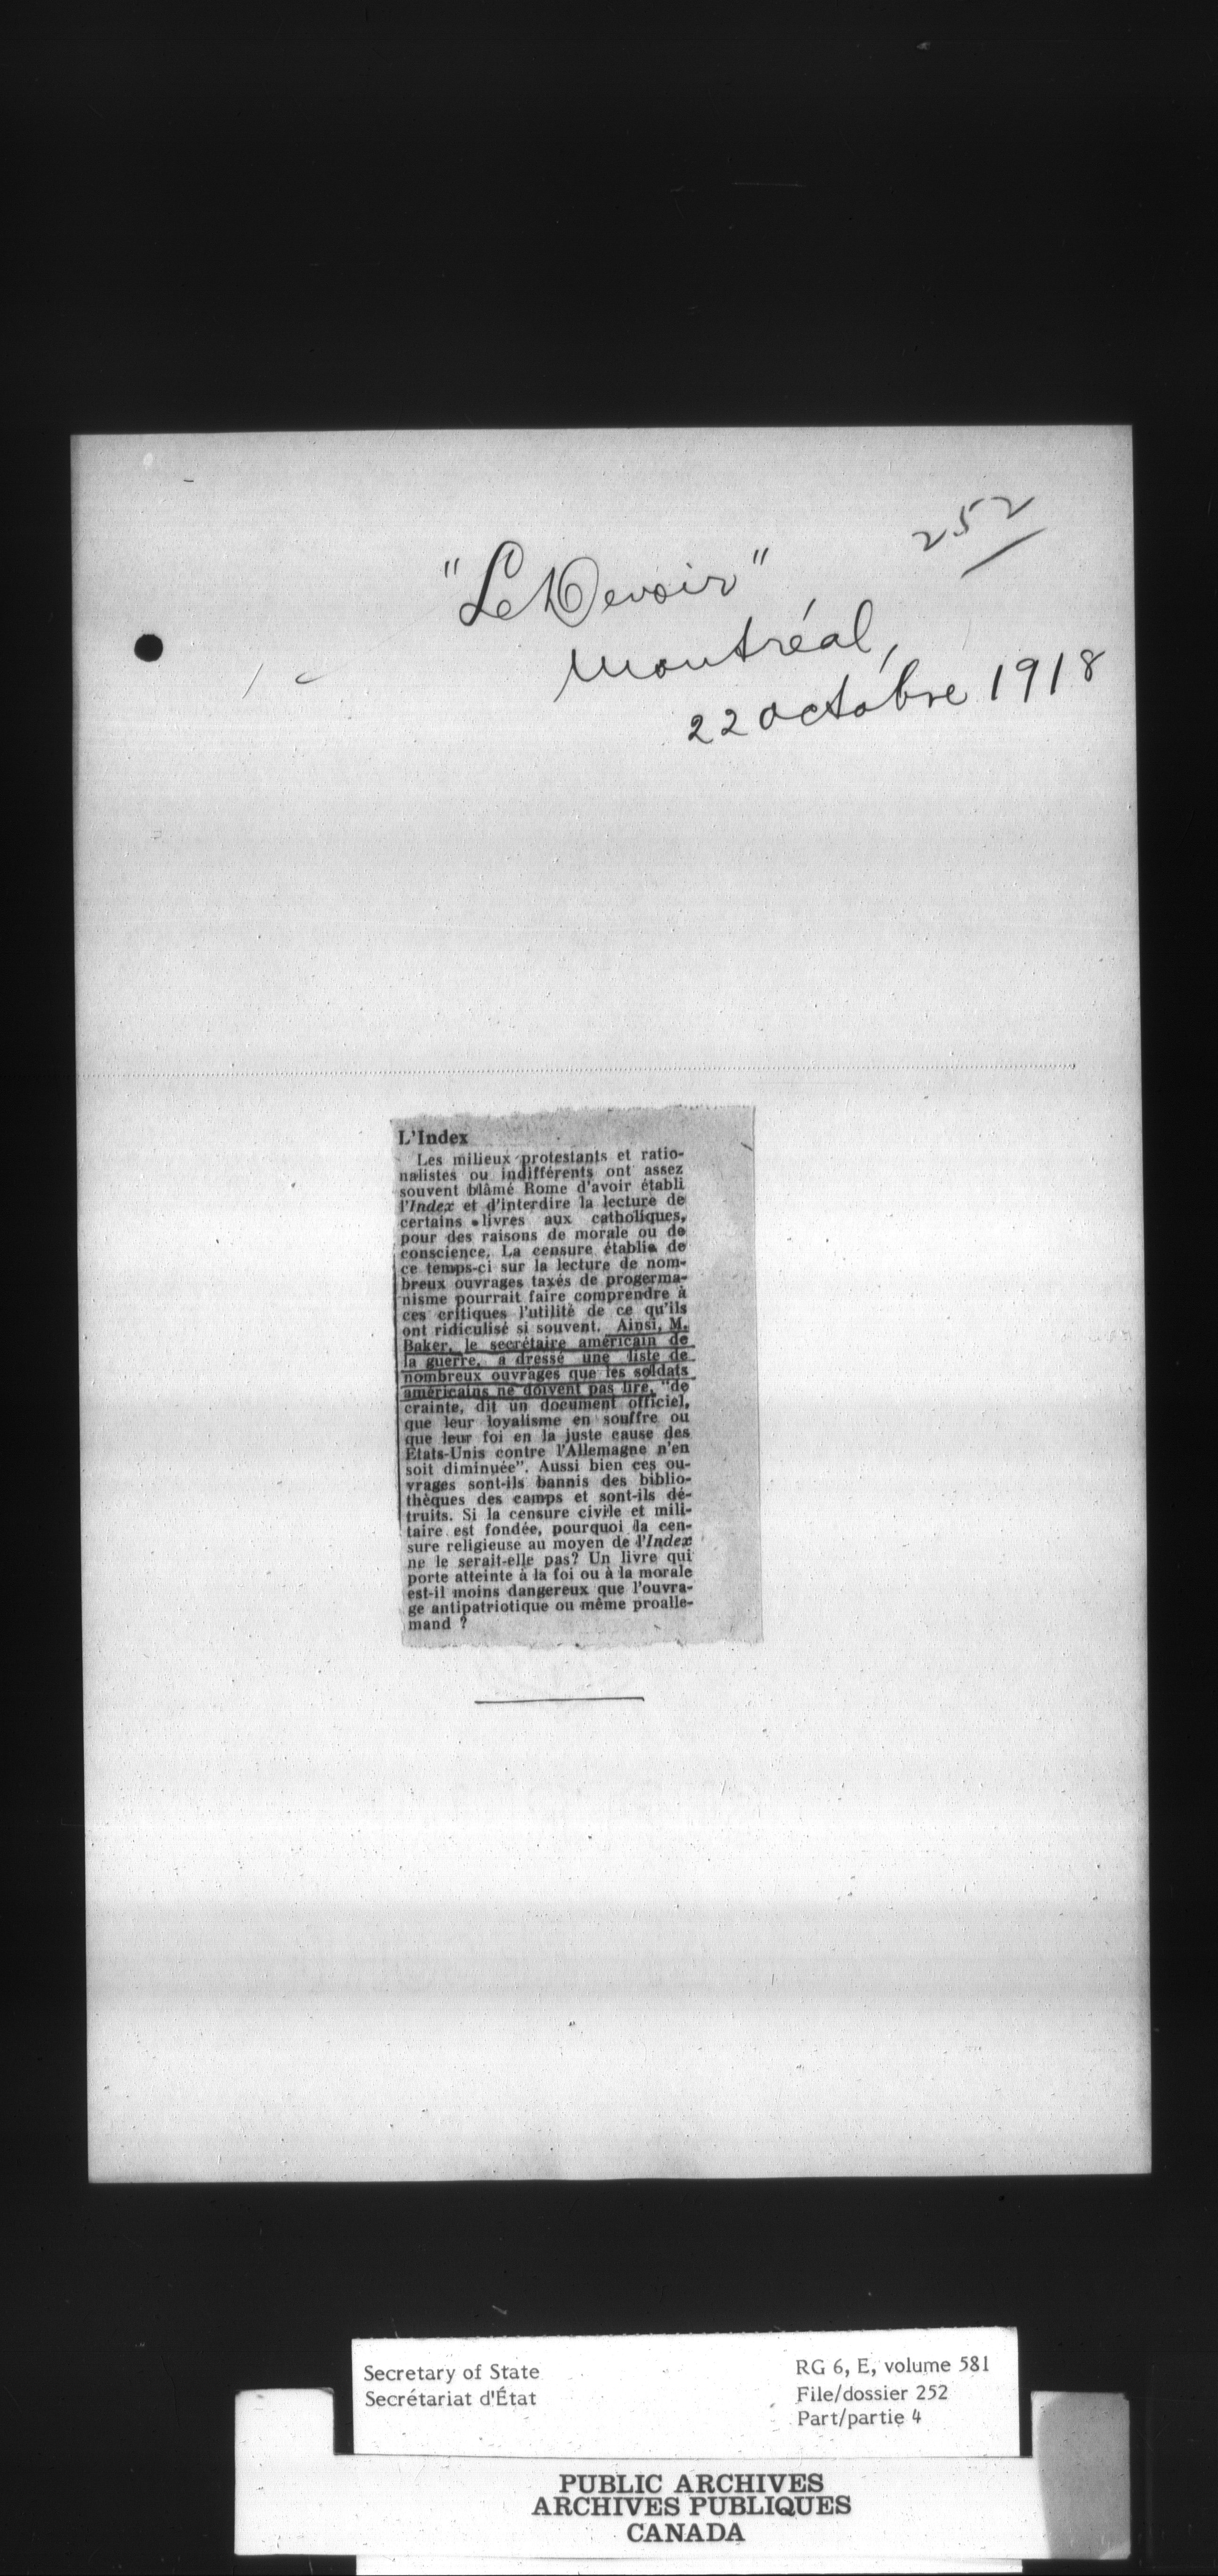 252
"Le Devoir"
Montréal,
22 octobre 1918
L'Index
Les milieux protestants et ratio-
nalistes ou indifférents ont assez
souvent blâmé Rome d'avoir établi
l'Index et d'interdire la lecture de
certains livres aux catholiques,
pour des raisons de morale ou de
conscience. La censure établie de
ce temps-ci sur la lecture de nom-
breux ouvrages taxés de progerma-
nisme pourrait faire comprendre à
ces critiques l'utilité de ce qu'ils
ont ridiculisé si souvent. Ainsi, M.
Baker, le secrétaire américain de
la guerre, a dressé une liste de
nombreux ouvrages que les soldats
américains ne doivent pas lire, "de
crainte, dit un document officiel,
que leur loyalisme en souffre ou
que leur foi en la juste cause des
Etats-Unis contre l'Allemagne n'en
soit diminuée". Aussi bien ces ou-
vrages sont-ils bannis des biblio-
thèques des camps et sont-ils dé-
truits. Si la censure civile et mili-
taire est fondée, pourquoi la cen-
sure religieuse au moyen de l'Index
ne le serait-elle pas? Un livre qui
porte atteinte à la foi ou à la morale
est-il moins dangereux que l'ouvra-
ge antipatriotique ou même proalle-
mand ?
Secretary of State
Secrétariat d'État
RG 6, E, volume 581
File/dossier 252
Part/partie 4
PUBLIC ARCHIVES
ARCHIVES PUBLIQUES
CANADA